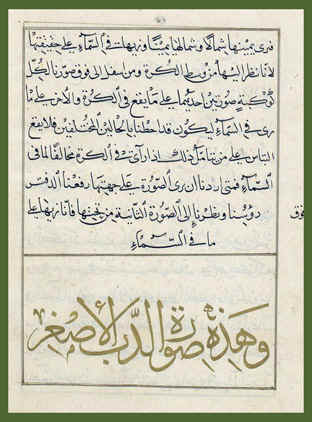 فنرى يمينها شمالًا وشمالها يمينًا ونراها في السمآء على حقيقتها
لأنا ننظر اليها من وسط الكرة ومن اسفل الى فوق صورنا لكل
كوكبة صورتين احديهما على ما يقع في الكرة والاخرى على ما
يرى في السمآء ليكون قد احطنا بالحالين المختلفين فلا يقع
التباس على من يتامل ذلك اذا رآى في الكرة مخالفًا لما في
السمآء فمتى اردنا ان نرى الصورة على جهتها رفعنا الدفتر
فوق رؤسنا ونظرنا الى الصورة الثانية من تحتها فانا نراها على
ما هي في السمآء
وهذه صورة الدب الأصغر